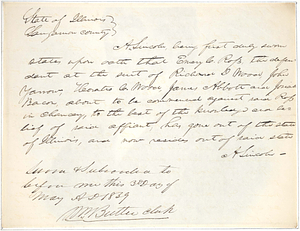 State of Illinois
Sangamon County
A. Lincoln being first duly sworn
states upon oath that the defen
dant at the suit of Richard D Wood John
Yarrow, Horatio C. Wood, James Abbott and Jones
Bacon about to be commenced against said
in Chancery, to the best of the knowledge and be-
lief of said affiant, has gone out of the state
of Illinois, and now resides out of said state
A. Lincoln
Sworn & Subscribed to
before me this 3rd day of
May A.D 1839
Wm Butler clerk